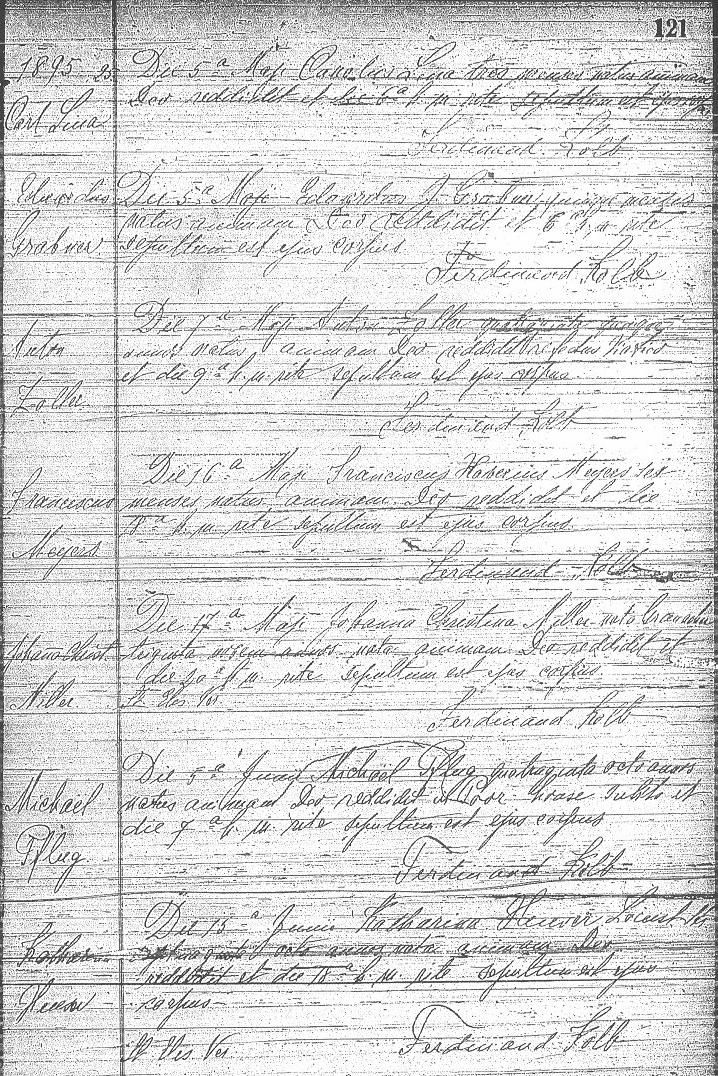 121
1895 23 Die 5ª Maji Carolus Lina tres menses natus animam
Carl Lina
Deo reddidit et die 6ª h. m. rite sepultum est ejus corpus
Ferdinand Kolb
Eduardus
Grabner
Die 5ª Maji Eduardus J. menses
natus animam Deo reddidit et 6 h. m. rite
sepultum est ejus corpus
Ferdinand Kolb
Anton
Zoller
Die 7ª Maji Anton Zoller
annos natus, animam Deo reddidit
et die 9ª h. m. rite sepultum est ejus corpus
Ferdinand Kolb
Franciscus
Meyers
Die 16ª Maji Franciscus Xaverius Meyers sex
menses natus animam Deo reddidit et die
18ª h. m. rite sepultum est ejus corpus
Ferdinand Kolb
Johanna Christ.
Miller
Die 17ª Maji Johanna Christina Miller nata
triginta novem annos nata animam Deo reddidit et
die 20ª h. m. rite sepultum est ejus corpus
Ferdinand Kolb
Michaël
Pflug
Die 5ª Junij Michaël Pflug quadraginta octo annos
natus animam Deo reddidit in Poor house subito et
die 7ª h. m. rite sepultum est ejus corpus
Ferdinand Kolb
Kathar
Die 15ª Junii Katharina Locust St
octo annos nata animam Deo
reddidit et die 18ª h. m. rite sepultum est ejus
corpus
Ferdinand Kolb